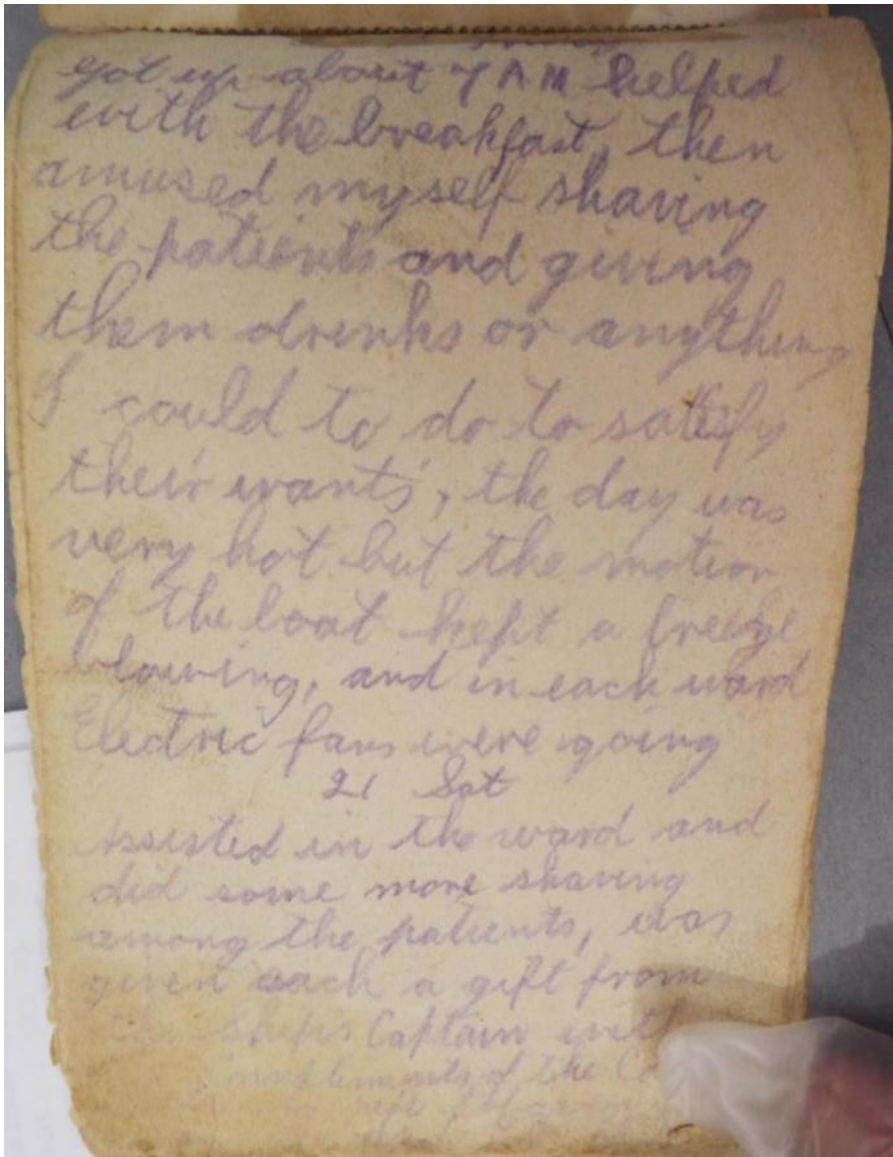 got up about 7 AM helped
with the breakfast, then
amused myself shaving
the patients and giving
them drinks or anything
I could to do to satisfy
their wants, the day was
very hot but the motion
of the boat kept a breeze
blowing, and in each ward
Electric fans were going
21 Sat
Assisted in the ward and
did some more shaving
among the patients, was
given each a gift from
the Ships Captain with
of the